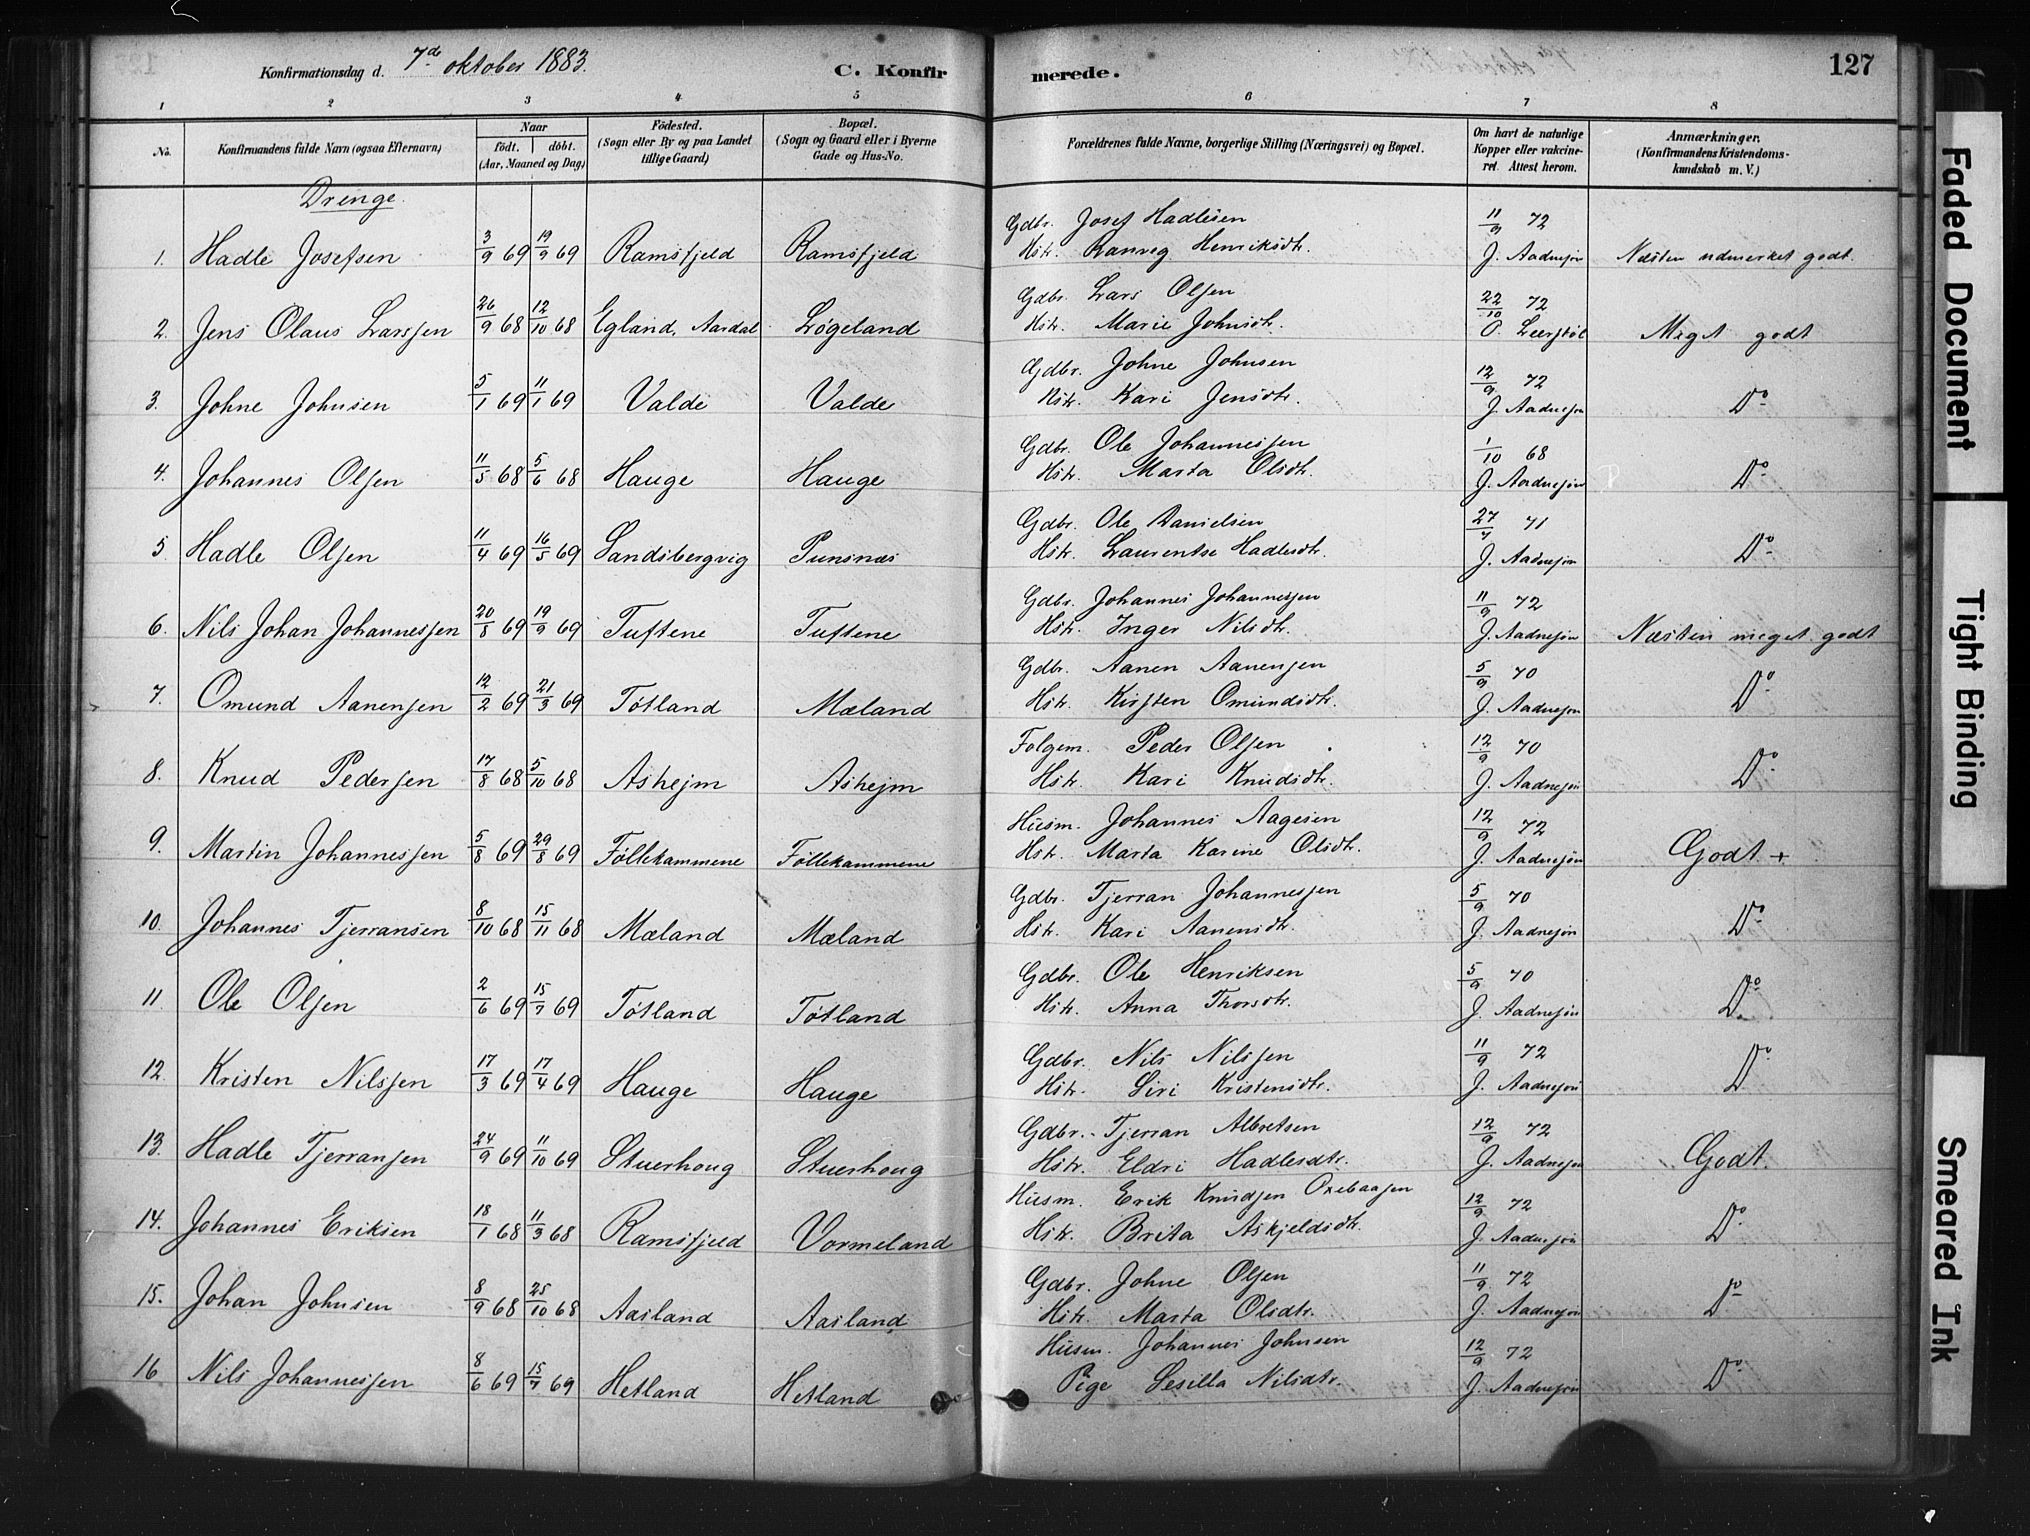 Konfirmationsdag d. 7de oktober 1883.
C. Konfirmerede.
127
1 2 3 4 5 6 7 8
No.
Konfirmandens fulde Navn (ogsaa Efternavn)
Naar
født. døbt.
(Aar, Maaned og Dag)
Fødested.
(Sogn eller By og paa Landet
tillige Gaard)
Bopæl.
(Sogn og Gaard eller i Byerne
Gade og Hus-No.
Forældrenes fulde Navne, borgerlige Stilling (Næringsvei) og Bopæl.
Om havt de naturlige
Kopper eller vakcine-
ret. Attest herom.
Anmærkninger.
(Konfirmandens Kristendoms-
kundskab m. V.)
Drenge.
Gdbr. Josef Hadlesen 11/9 72
1. Hadle Josefsen 3/9 69 19/9 69 Ramsfjeld Ramsfjeld Hstr. Ranveg Henriksdtr. J. Aadnesøn Næsten udmerket godt.
Gdbr. Lars Olsen 22/10 72
2. Jens Olaus Larssen 26/9 68 12/10 68 Egland, Aardal Løgeland Hstr. Marie Johnsdtr. Meget godt
Gdbr. Johne Johnsen 12/9 72
3. Johne Johnsen 5/1 69 11/1 69 Valde Valde Hstr. Kari Jensdtr. J. Aadnesøn Do
Gdbr. Ole Johannessen 1/10 68
4. Johannes Olsen 11/5 68 5/6 68 Hauge Hauge Hstr. Marta Olsdtr. J. Aadnesøn Do
Gdbr. Ole Danielsen 27/7 71
5. Hadle Olsen 11/4 69 16/5 69 Sandsbergvig Punsnæs Hstr. Laurentse Hadlesdtr. J. Aadnesøn Do
Gdbr. Johannes Johannessen 11/9 72
6. Nils Johan Johannessen 20/8 69 19/9 69 Tuftene Tuftene Hstr. Inger Nilsdtr. J. Aadnesøn Næsten meget godt
Gdbr. Aanen Aanensen 5/9 70
7. Omund Aanensen 12/2 69 21/3 69 Tøtland Mæland Hstr. Kirsten Omundsdtr. J. Aadnesøn Do
Folgem. Peder Olsen 12/9 70
8. Knud Pedersen 17/8 68 5/10 68 Ashejm Ashejm Hstr. Kari Knudsdtr. J. Aadnesøn Do
Husm. Johannes Aagesen 12/9 72
9. Martin Johannessen 5/8 69 29/8 69 Føllekammene Føllekammene Hstr. Marta Karine Olsdtr. J. Aadnesøn Godt +
Gdbr. Tjerran Johannessen 5/9 70
10. Johannes Tjerransen 8/10 68 15/11 68 Mæland Mæland Hstr. Kari Aanensdtr. J. Aadnesøn Do
Gdbr. Ole Henriksen 5/9 70
11. Ole Olsen 2/6 69 15/7 69 Tøtland Tøtland Hstr. Anna Thorsdtr. J. Aadnesøn Do
Gdbr. Nils Nilssen 11/9 72
12. Kristen Nilssen 17/3 69 17/4 69 Hauge Hauge Hstr. Siri Kristensdtr. J. Aadnesøn Do
Gdbr. Tjerran Albretsen 12/9 72
13. Hadle Tjerransen 24/9 69 11/10 69 Stuerhoug Stuerhoug Hstr. Eldri Hadlesdtr. J. Aadnesøn Godt.
Husm. Erik Knudsen Oxebaasen 12/9 72
14. Johannes Eriksen 18/1 68 11/3 68 Ramsfjeld Vormeland Hstr. Brita Askjeldsdtr. J. Aadnesøn Do
Gdbr. Johne Olsen 11/9 72
15. Johan Johnsen 8/9 68 25/10 68 Aasland Aasland Hstr. Marta Olsdtr. J. Aadnesøn Do
Husm. Johannes Johnsen 12/9 72
16 Nils Johannessen 8/6 69 15/7 69 Hetland Hetland Pige Sesilla Nilsdtr. J. Aadnesøn Do
Faded Document
Tight Binding
Smeared Ink